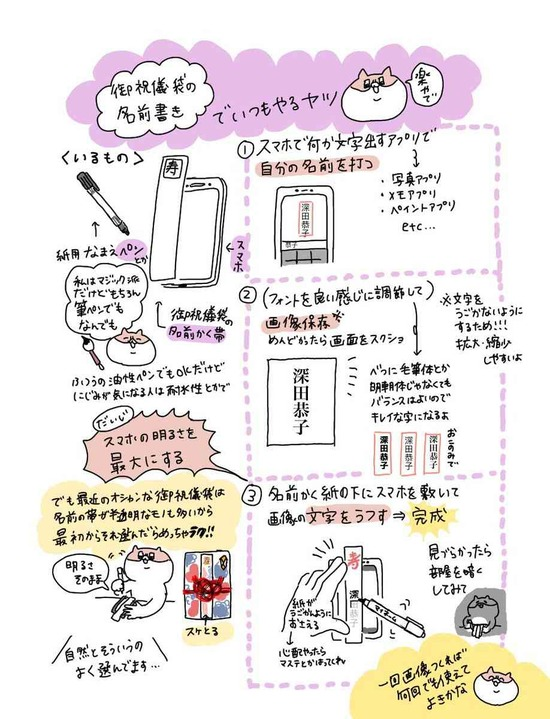 御祝儀袋の
名前書き
でいつもやるヤツ
楽やで
<いるもの>
寿
紙用 なまえペン
とか
スマホ
私はマジック派
だけどもちろん
筆ペンでも
なんでも
御祝儀袋の
名前かく帯
ふつうの油性ペンでもOKだけど
にじみが気になる人は耐水性とかで
だいじ
スマホの明るさを
最大にする
でも最近のオシャンな御祝儀袋は
名前の帯が半透明なモノも多いから
最初からそれ選んだらめっちゃラク!!
明るさ
そのまま
スケとる
自然とそういうの
よく選んでます…
① スマホで何か文字出すアプリで
自分の名前を打つ
・写真アプリ
・メモアプリ
・ペイントアプリ
etc…
深田恭子
恭子
② (フォントを良い感じに調節して)
画像保存※
めんどかったら画面をスクショ
※文字を
うごかないように
するため!!!
拡大・縮小
しやすいよ
深田恭子
べつに毛筆体とか
明朝体じゃなくても
バランスはよいので
キレイな字になるよ
深田恭子
深田恭子
深田恭子
おこのみで
③ 名前かく紙の下にスマホを敷いて
画像の文字をうつす⇒完成
寿
深
紙が
うごかんように
おさえる
心配やったら
マステとかはってくれ
見づらかったら
部屋を暗く
してみて
一回画像つくれば
何回でも使えて
よきかな